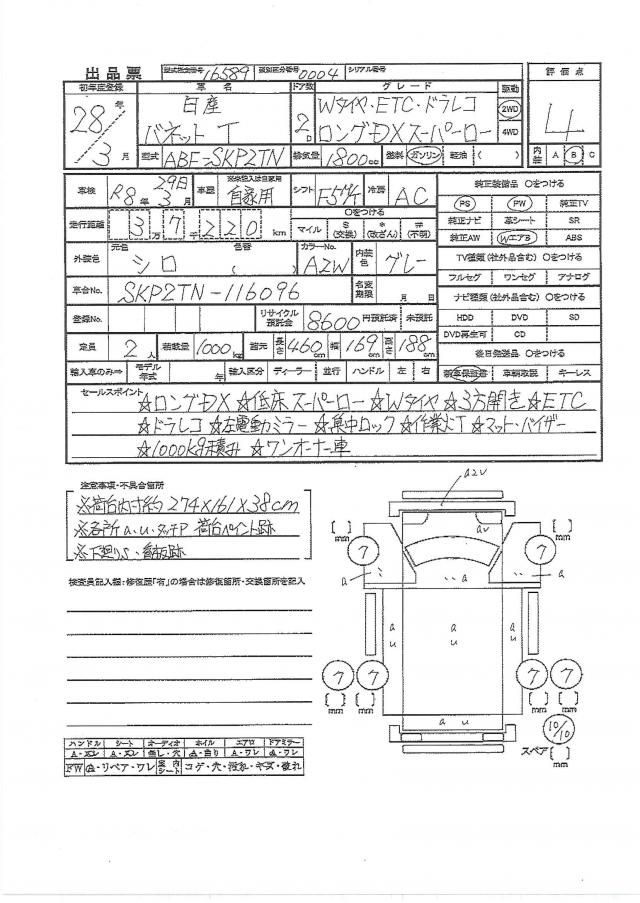 出品票 型式指定番号 16589 類別区分番号 0004 シリアル番号
初年度登録 車名 ドア数 グレード 駆動 評価点
28年 日産 Wタイヤ・ETC・ドラレコ 2WD 4
3月 バネットT 2D ロングDXスーパーロー 4WD
型式 ABF-SKP2TN 排気量 1800cc 燃料 ガソリン・軽油・( ) 内装 A B C
車検 R8年 3月 29日 車歴 ※未記入は自家用 自家用 シフト F5 冷房 AC 純正装備品 ○をつける
走行距離 3万7千220km ○をつける マイル $(交換) *(改ざん) #(不明) PS PW 純正TV
純正ナビ 革シート SR
外装色 元色 シロ 色替 ( ) カラーNo. A2W 内装色 グレー 純正AW WエアB ABS
TV種類(社外品含む) ○をつける
車台No. SKP2TN-116096 名変期限 月 日 フルセグ ワンセグ アナログ
ナビ種類(社外品含む) ○をつける
登録No. リサイクル預託金 8600円預託済 未預託 HDD DVD SD
DVD再生可 CD
定員 2人 積載量 1000kg 諸元 長さ 460cm 幅 169cm 高さ 188cm 後日発送品 ○をつける
輸入車のみ⇒ モデル年式 年 輸入区分 ディーラー 並行 ハンドル 左 右 新車保証書 車輌取説 キーレス
セールスポイント
☆ロングDX ☆低床スーパーロー ☆Wタイヤ ☆3方開き ☆ETC
☆ドラレコ ☆左電動ミラー ☆集中ロック ☆作業灯 ☆マット・バイザー
☆1000kg積み ☆ワンオーナー車
注意事項・不具合箇所
※荷台内寸約274×161×38cm
※各所a.u.タッチP 荷台ペイント跡
※下廻りS・看板跡
検査員記入欄:修復歴「有」の場合は修復箇所・交換箇所を記入
A2U
au
[ ]mm [ ]mm
7 7
a a a
a u a u a u
7 7 7 7
[ ]mm [ ]mm [ ]mm [ ]mm
a u
10/10
スペア[ ]mm
ハンドル シート オーディオ ホイル エアロ ドアミラー
A・スレ A・スレ 無し・穴 A・曲り A・ワレ A・ワレ
FW A・リペア・ワレ 室内シート コゲ・穴・汚れ・キズ・破れ